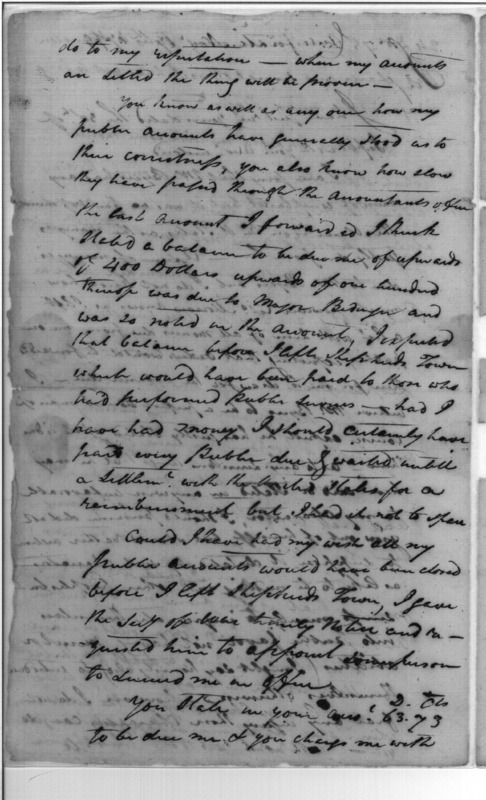 do to my reputation — when my accounts
are settled the thing will be proven —
You know as well as any one how my
public accounts have generally stood as to
their correctness, you also know how slow
they have passed through the Accountants office
the last account I forwarded I think
stated a balance to be due me of upwards
of 400 Dollars upwards of one hundred
thereof was due to Major Bedinger and
was so noted in the account, I expected
that balance before I left Shepherds Town
which would have been paid to those who
had performed Public Services — had I
have had money I should certainly have
paid every Public due & waited untill
a Settlemt with the United States for a
reimbursement but I had it not to spare
Could I have had my wish all my
public accounts would have been closed
before I left Shepherds Town, I gave
the Secy of War timely Notice and re-
quested him to appoint some person
to succeed me in office
You State in your acct D. Cts 63.73
to be due me & you charge me with